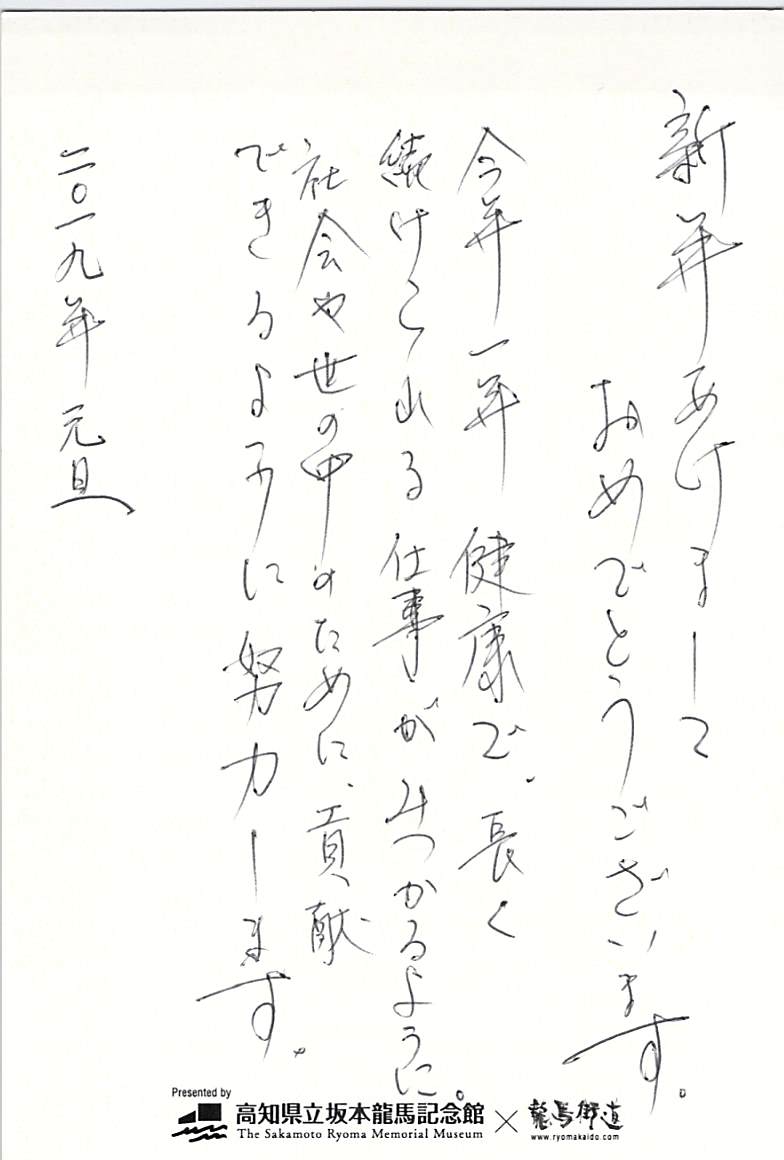 新年あけまして
おめでとうございます。
今年一年 健康で、長く
続けられる仕事がみつかるように。
社会や世の中のために、貢献
できるように努力します。
二〇一九年 元旦
Presented by
高知県立坂本龍馬記念館
The Sakamoto Ryoma Memorial Museum
×
龍馬街道
www.ryomakaido.com